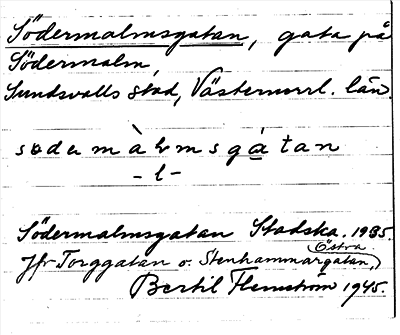 Södermalmsgatan, gata på
Södermalm,
Sundsvalls stad, Västernorrl. län.
södermàlmsgàtan
-l-
Södermalmsgatan Stadska. 1935.
Östra
Jfr Torggatan o. Stenhammargatan,
Bertil Flemström 1945.